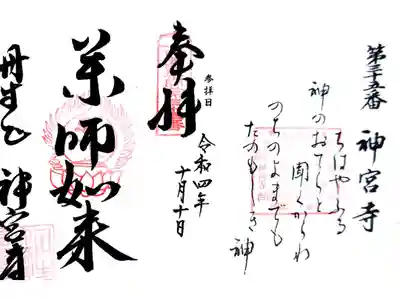 第三十五番 神宮寺
ちはやふる
神のおてらと
聞くからわ
のちのよまでも
たのもしき神
参拝日
令和四年
十月十日
奉拝
薬師如来
神宮寺